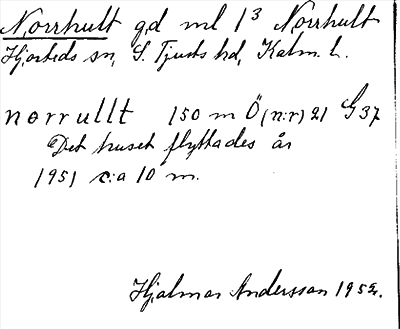 Norrhult gd ml 1³ Norrhult
Hjorteds sn, S. Tjusts hd, Kalm. l.
norrullt 150 m Ö (n:r) 21 G 37
Det huset flyttades år
1951 c:a 10 m.
Hjalmar Andersson 1952.